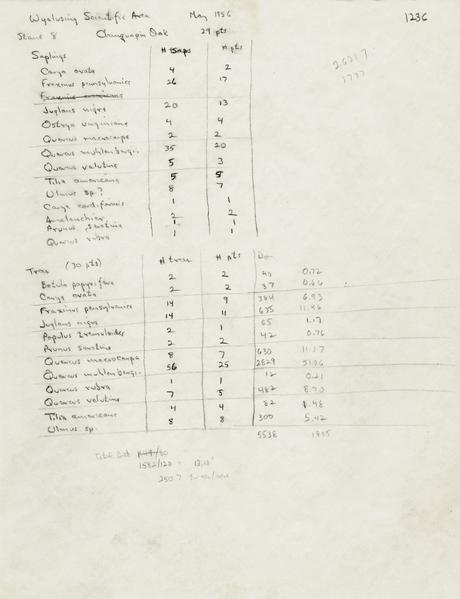 Wyalusing Scientific Area May 1956 1236
Stand 8 Chinquapin Oak 29 pts
Saplings # saps # pts
Carya ovata 4 2
Fraxinus pennsylvanica 26 17
Fraxinus americana
Juglans nigra 20 13
Ostrya virginiana 4 4
Quercus macrocarpa 2 2
Quercus muhlenbergii 35 20
Quercus velutina 5 3
Tilia americana 5 5
Ulmus sp.? 8 7
Carya cordiformis 1 1
Amelanchier 2 2
Prunus serotina 1 1
Quercus rubra 1 1
Trees (30 pts) # trees # pts Dom
Betula papyrifera 2 2 40 0.72
Carya ovata 2 2 37 0.66
Fraxinus pennsylvanica 14 9 384 6.93
Juglans nigra 14 11 635 11.46
Populus tremuloides 2 1 65 1.17
Prunus serotina 2 2 42 0.76
Quercus macrocarpa 8 7 630 11.37
Quercus muhlenbergii 56 25 2829 51.06
Quercus rubra 1 1 12 0.21
Quercus velutina 7 5 482 8.70
Tilia americana 4 4 82 1.48
Ulmus sp. 8 8 300 5.42
5538
Total dist
1582/120 = 13.18'
250.7 trees/acre